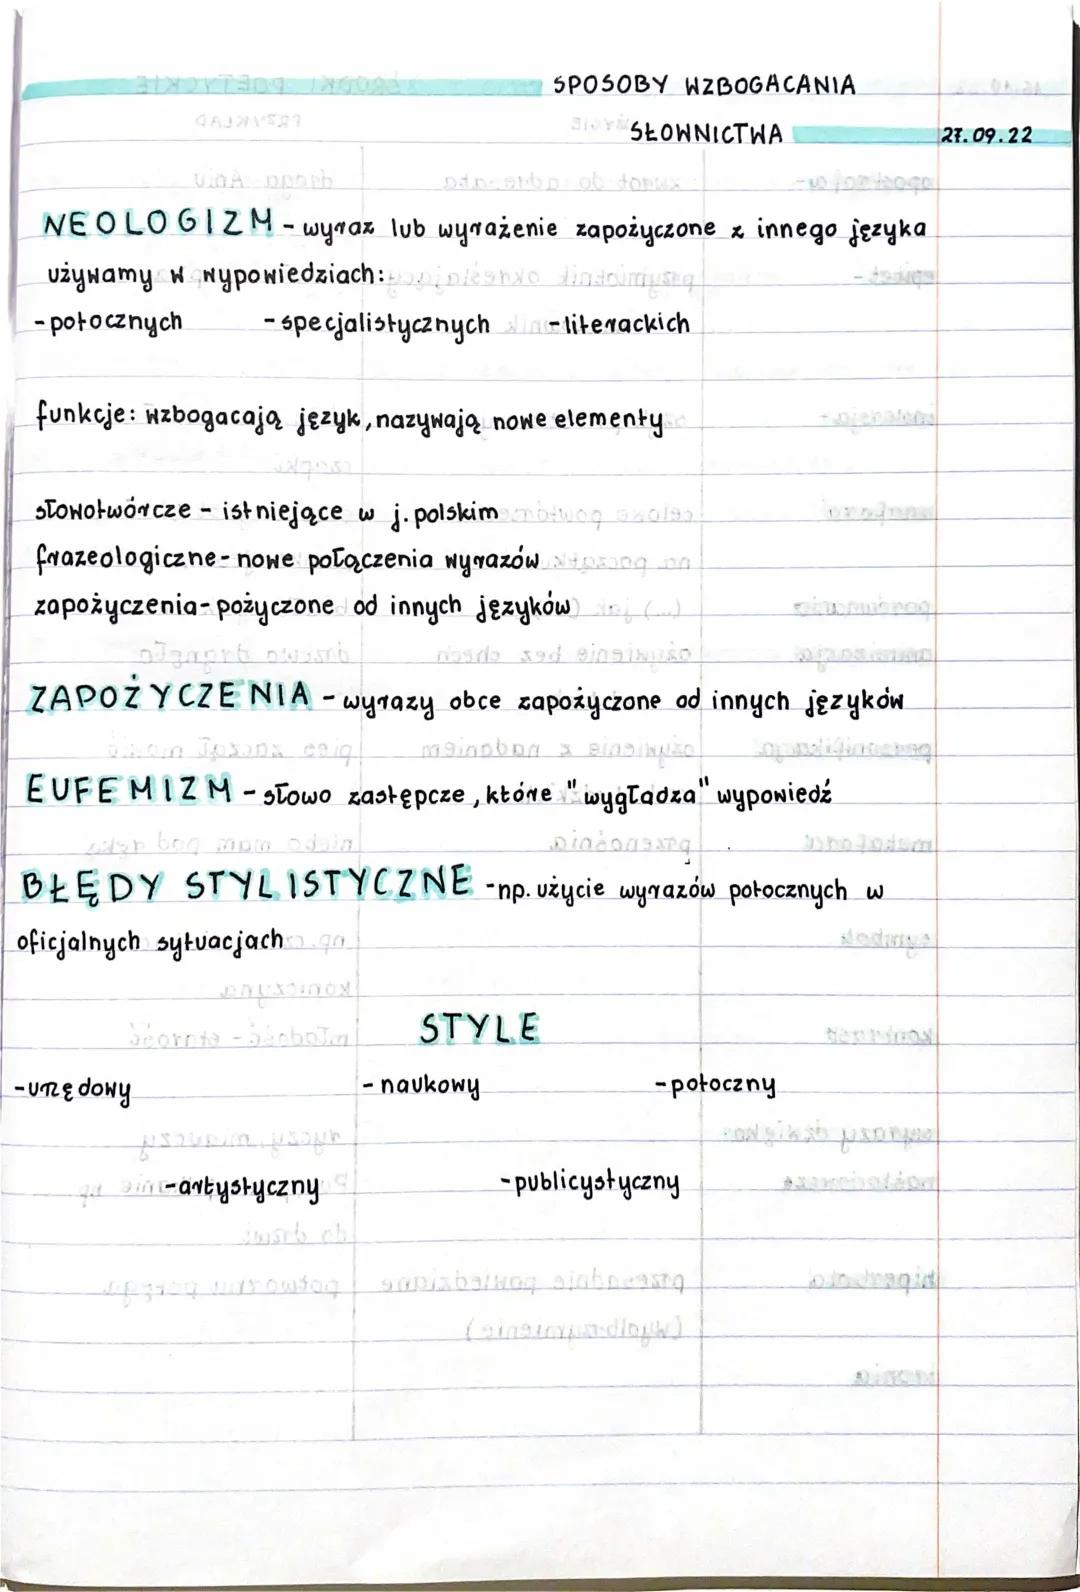 SPOSOBY WZBOGACANIA
SŁOWNICTWA 27.09.22
NEOLOGIZM - wyraz lub wyrażenie zapożyczone z innego języka
używamy w wypowiedziach:
- potocznych - specjalistycznych - literackich
funkcje: wzbogacają język, nazywają nowe elementy
słowotwórcze - istniejące w j. polskim
frazeologiczne - nowe połączenia wyrazów
zapożyczenia - pożyczone od innych języków
ZAPOŻYCZENIA - wyrazy obce zapożyczone od innych języków
EUFEMIZM - słowo zastępcze, które "wygładza" wypowiedź
BŁĘDY STYLISTYCZNE - np. użycie wyrazów potocznych w
oficjalnych sytuacjach
STYLE
- urzędowy - naukowy - potoczny
- artystyczny - publicystyczny